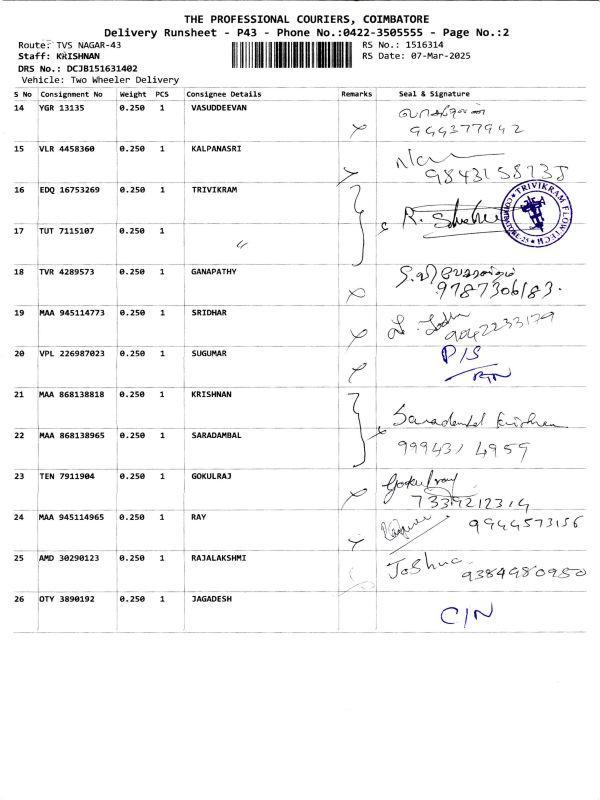 THE PROFESSIONAL COURIERS, COIMBATORE
Delivery Runsheet - P43 - Phone No.:0422-3505555 - Page No.:2
Route: TVS NAGAR-43 RS No.: 1516314
Staff: KRISHNAN RS Date: 07-Mar-2025
DRS No.: DCJB151631402
Vehicle: Two Wheeler Delivery
S No Consignment No Weight PCS Consignee Details Remarks Seal & Signature
14 YGR 13135 0.250 1 VASUDDEEVAN
944377942
15 VLR 4458360 0.250 1 KALPANASRI
9843158738
16 EDQ 16753269 0.250 1 TRIVIKRAM
TRIVIKRAM FLOWTECH
17 TUT 7115107 0.250 1 〃
18 TVR 4289573 0.250 1 GANAPATHY
9787306183.
19 MAA 945114773 0.250 1 SRIDHAR
9042233179
20 VPL 226987023 0.250 1 SUGUMAR P/S
21 MAA 868138818 0.250 1 KRISHNAN
Saradambal Krishnan
22 MAA 868138965 0.250 1 SARADAMBAL
9994314959
23 TEN 7911904 0.250 1 GOKULRAJ Gokulraj
7339212314
24 MAA 945114965 0.250 1 RAY 9944573156
25 AMD 30290123 0.250 1 RAJALAKSHMI Joshua 9384980950
26 OTY 3890192 0.250 1 JAGADESH C/N